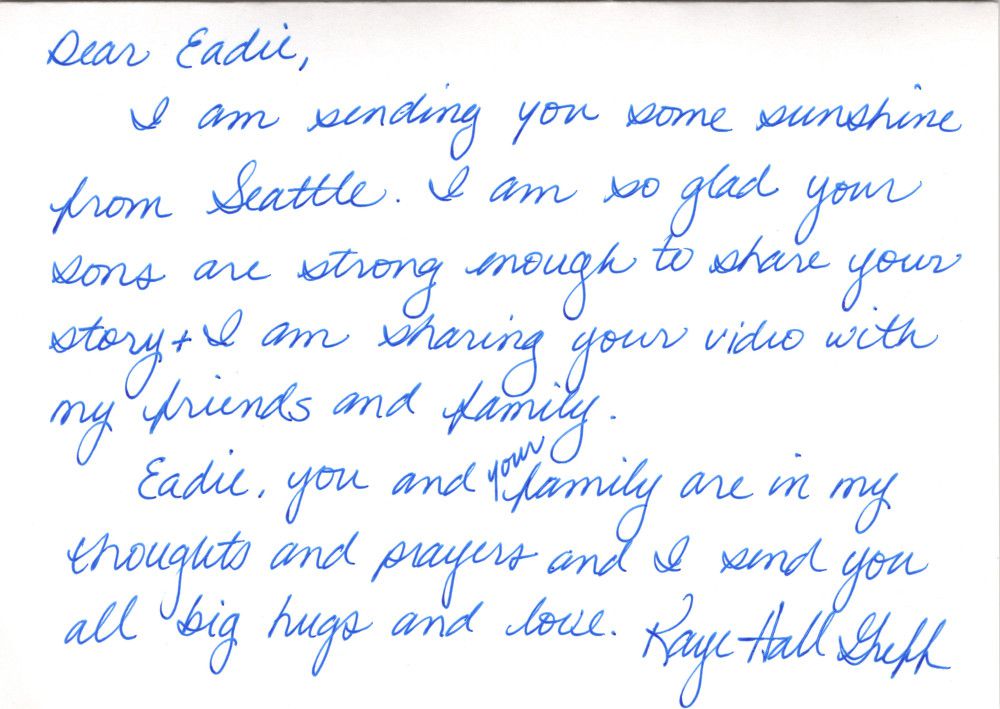 Dear Eadie,
I am sending you some sunshine
from Seattle. I am so glad your
sons are strong enough to share your
story + I am sharing your video with
my friends and family.
Eadie, you and your family are in my
thoughts and prayers and I send you
all big hugs and love. Kaye Hall Greff